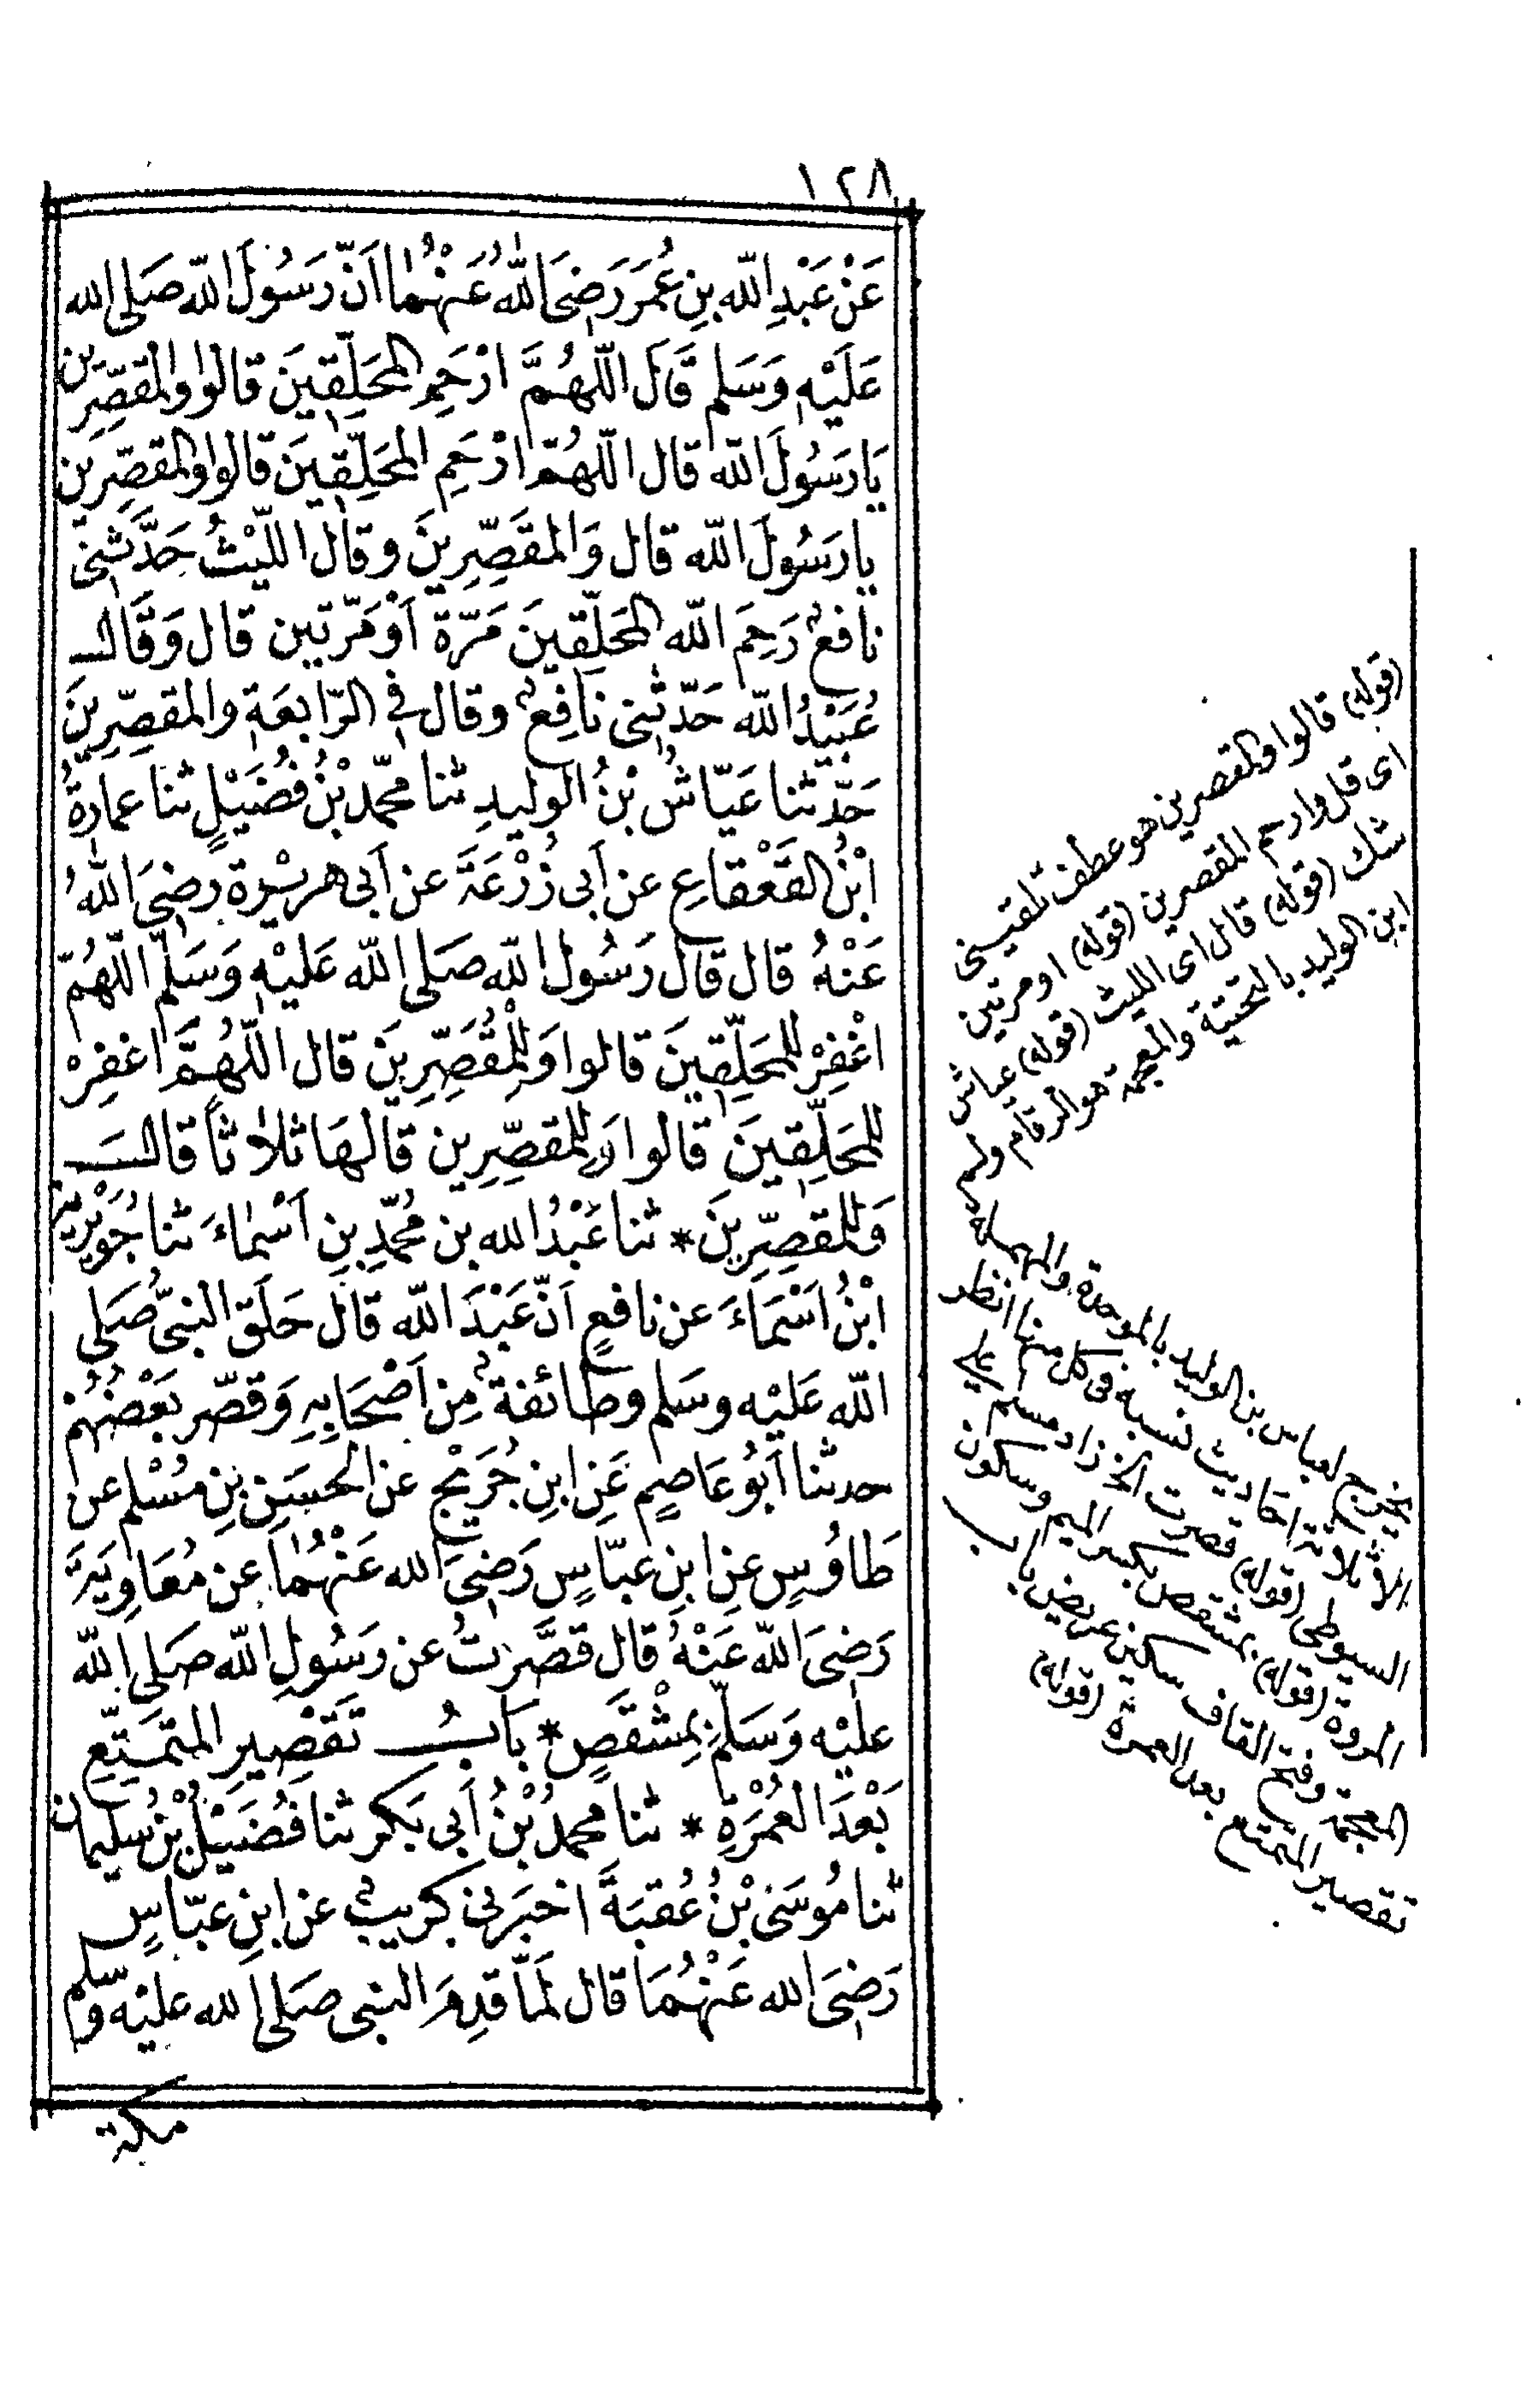 ١٢٨
عَنْ عَبْدِ اللّه بنِ عُمَرَ رَضِىَ اللّٰهُ عَنْهُما اَنّ رَسُولَ اللّه صَلى الله
عَلَيْهِ وَسَلم قَال اللّهُمَّ ارْحَمِ المحَلِّقِينَ قالوا والمقصِّرِين
يَا رَسُولَ اللّه قال اللّهُمّ ارْحَمِ المحَلِّقِينَ قالوا والمقصِّرِين
يا رَسُولَ اللّه قال وَالمقَصِّرِينَ وقال اللّيْثُ حَدَّثنِى
نافعٌ رَحِمَ اللّه المحَلِّقِينَ مَرّة اَوْ مَرّتين قال وَقَال
عُبَيْدُ اللّه حَدّثنِى نافِعٌ وقال فِى الرّابعَةِ والمقصِّرِينَ
حَدّثنا عَيّاشُ بْنُ الوليدِ ثنا محمّد بْنُ فُضَيْلٍ ثنا عمارةُ
ابْنُ القَعْقاعِ عن اَبى زُرْعَةَ عن اَبى هريْرة رضِىَ اللّٰهُ
عَنْهُ قال قال رَسُول اللّه صَلى اللّه عَليْهِ وَسَلم اللّهُمّ
اغْفِرْ للمحَلِّقِينَ قالوا وَلِلْمُقَصِّرِينَ قال اللّهُمَّ اغفِرْ
للمحَلِّقِينَ قالوا وَللمقصِّرِين قالهَا ثلاثاً قال
وَللمقصِّرِينَ * ثنا عَبْدُ الله بن محمّدِ بنِ اَسْماءَ ثنا جُوَيْرية
ابْنُ اَسْمَاءَ عن نافعٍ اَنّ عَبْدَ اللّه قال حَلَق النبىُّ صَلى
اللّه عَليْه وسَلم وطائفة مِن اَصْحَابِهِ وَقصّر بَعْضُهُمْ
حدثنا اَبُو عَاصِمٍ عَنِ ابنِ جُرَيْجٍ عن الحسَنِ بنِ مُسْلم عن
طَاوُسٍ عنِ ابنِ عبّاسٍ رَضِىَ الله عَنْهُمَا عن مُعَاوِيَةَ
رَضِىَ اللّه عَنْهُ قال قصَّرتُ عن رَسُولِ اللّه صَلى اللّه
عليْه وَسَلم بِمِشْقَصٍ * بَابُ تَقْصِيرِ المتَمَتِّعِ
بَعْدَ العُمْرَةِ * ثنا محمدُ بْنُ اَبى بَكر ثنا فُضَيْلُ بْنُ سُليمان
ثنا مُوسَى بْنُ عُقبَةَ اخبَرنِى كُريبٌ عن ابنِ عبّاسٍ
رَضِىَ الله عَنْهُمَا قال لَمّا قدِمَ النبى صَلى الله عليْه وسلم
مكة
(قوله) قالوا والمقصرين هو عطف تلقينى
اى قل وارحم المقصرين (قوله) او مرتين
شك (قوله) قال اى الليث (قوله) عياش
ابن الوليد بالتحتية والمعجمة هو الرقام ولم
يخرج لعباس بن الوليد بالموحدة والمهملة
الا ثلاثة احاديث نسبه فى كل منها انظر
السيوطى (قوله) قصرت الخ زاد مسلم على
المروة (قوله) بمشقص بكسر الميم وسكون
المعجمة وفتح القاف سكين عريض باب
تقصير المتمتع بعد العمرة (قوله)